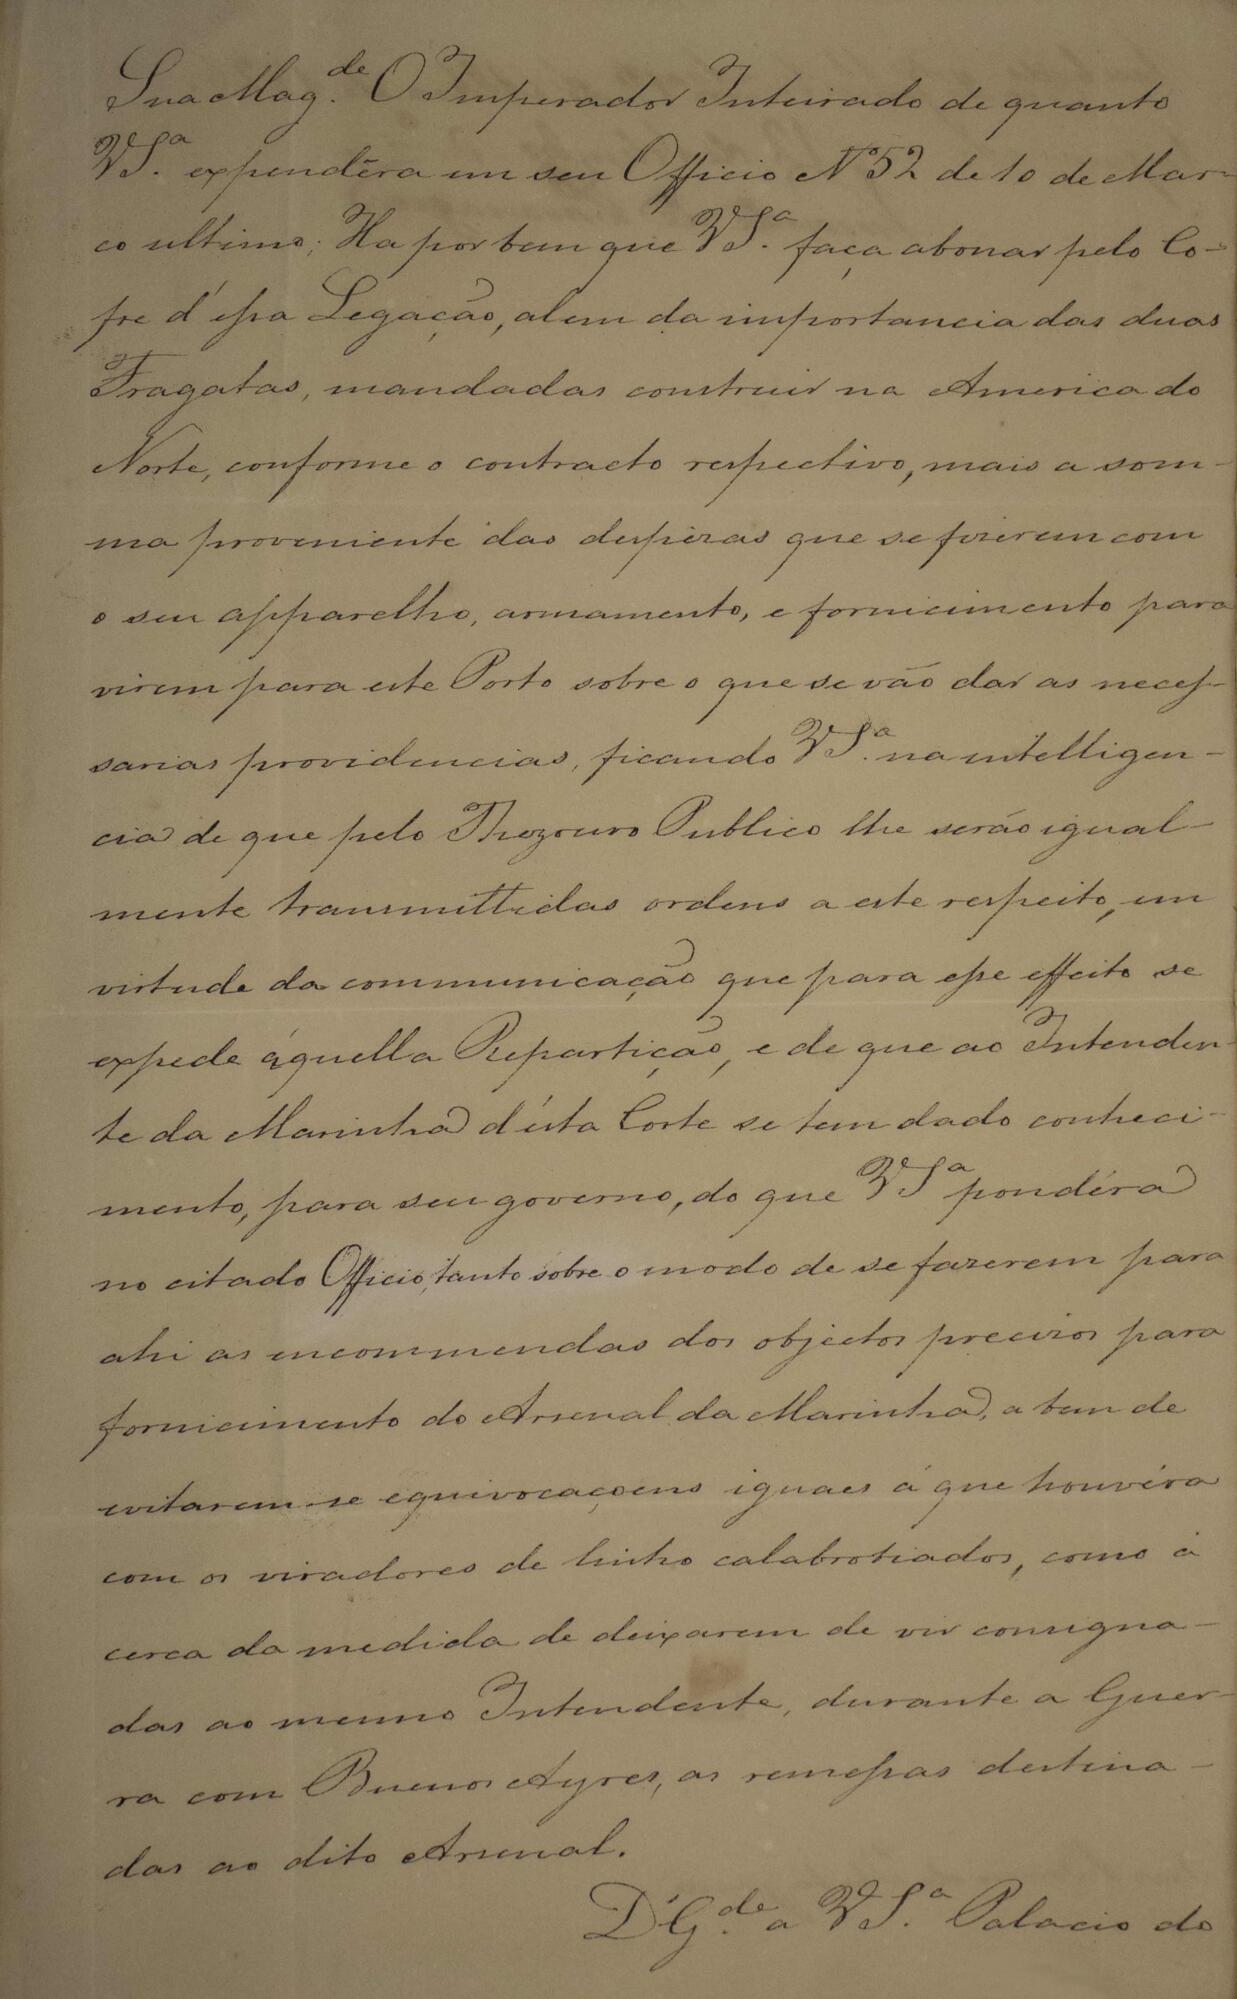 Sua Mag.de O Imperador Inteirado de quanto
VS.a expendêra em seu Officio Nº 52 de 10 de Mar-
ço ultimo; Ha por bem que VS.a faça abonar pelo Co-
fre d'essa Legação, alem da importancia das duas
Fragatas, mandadas construir na America do
Norte, conforme o contracto respectivo, mais a som-
ma proveniente das despezas que se fizerem com
o seu apparelho, armamento, e fornicimento para
virem para este Porto sobre o que se vão dar as neces-
sarias providencias, ficando VS.a na intelligen-
cia de que pelo Thezouro Publico lhe serão igual-
mente transmittidas ordens a este respeito, em
virtude da communicação que para esse effeito se
expede áquella Repartição, e de que ao Intenden-
te da Marinha d'ésta Corte se tem dado conheci-
mento, para seu governo, do que VS.a pondéra
no citado Officio, tanto sobre o modo de se fazerem para
ahi as encommendas dos objectos precizos para
fornicimento do Arsenal da Marinha, a bem de
evitarem-se equivocaçoens iguaes á que houvéra
com os viradores de linho calabroteados, como á
cerca da medida de deixarem de vir consigna-
das ao mesmo Intendente, durante a Guer-
ra com Buenos Ayres, as remessas destina-
das ao dito Arsenal.
D' G.de a VS.a Palacio do